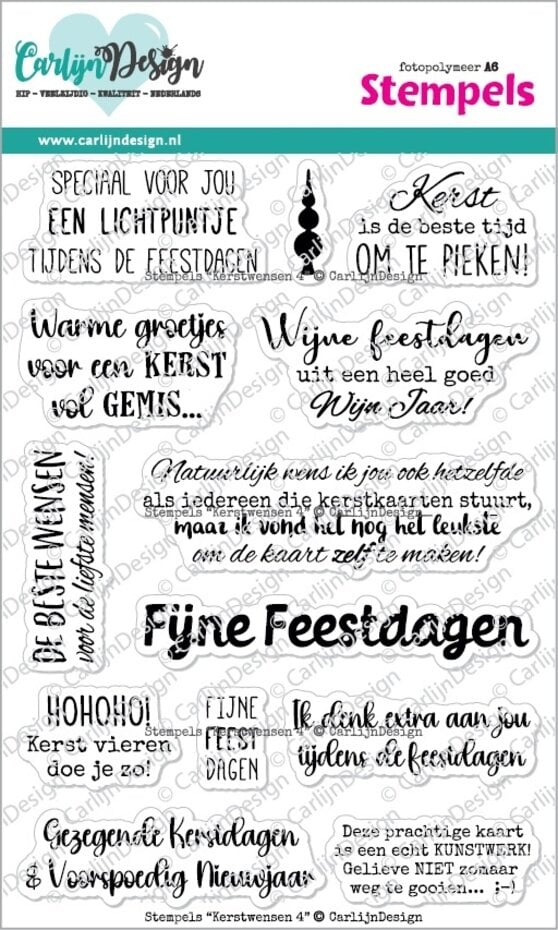 Carlijn Design
HIP – VEELZIJDIG – KWALITEIT – NEDERLANDS
fotopolymeer A6
Stempels
www.carlijndesign.nl
SPECIAAL VOOR JOU
EEN LICHTPUNTJE
TIJDENS DE FEESTDAGEN
Kerst
is de beste tijd
OM TE PIEKEN!
Stempels "Kerstwensen 4" © CarlijnDesign
Warme groetjes
voor een KERST
vol GEMIS...
Wijne feestdagen
uit een heel goed
Wijn Jaar!
DE BESTE WENSEN
voor de liefste mensen!
Natuurlijk wens ik jou ook hetzelfde
als iedereen die kerstkaarten stuurt,
maar ik vond het nog het leukste
om de kaart zelf te maken!
Stempels "Kerstwensen 4" © CarlijnDesign
Fijne Feestdagen
HOHOHO!
Kerst vieren
doe je zo!
FIJNE
FEEST
DAGEN
Ik denk extra aan jou
tijdens de feestdagen
Stempels "Kerstwensen 4" © CarlijnDesign
Gezegende Kerstdagen
& Voorspoedig Nieuwjaar
Deze prachtige kaart
is een echt KUNSTWERK!
Gelieve NIET zomaar
weg te gooien... ;-)
Stempels "Kerstwensen 4" © CarlijnDesign